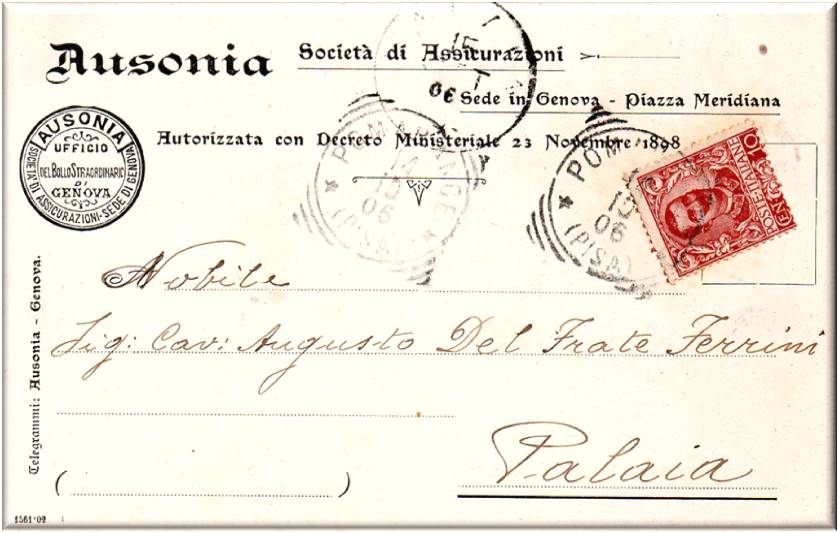 Ausonia Società di Assicurazioni
Sede in Genova - Piazza Meridiana
Autorizzata con Decreto Ministeriale 23 Novembre 1898
AUSONIA
UFFICIO
DEL BOLLO STRAORDINARIO
DI
GENOVA
SOCIETÀ DI ASSICURAZIONI - SEDE DI GENOVA
POMARANCE
14
10
06
(PISA)
06
POM
10
06
(PISA)
POSTE ITALIANE
CENT. 10
Nobile
Sig: Cav: Augusto Del Frate Ferrini
Palaia
( )
Telegrammi: Ausonia - Genova.
1561-02